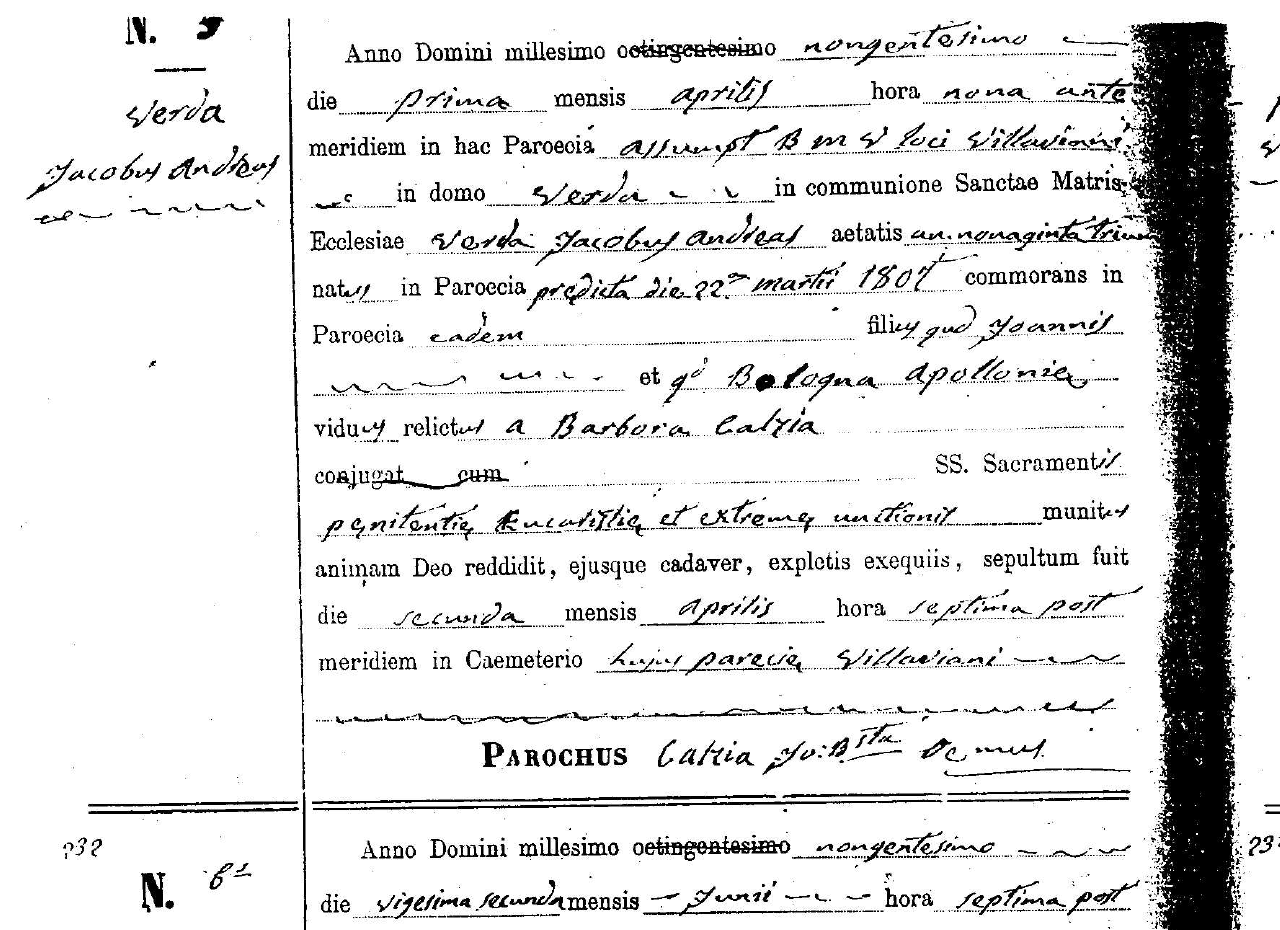 N. 5
Verda
Jacobus Andreas
Anno Domini millesimo octingentesimo nongentesimo
die prima mensis aprilis hora nona ante
meridiem in hac Paroecia assumpt B M V loci Villaviani
in domo Verda in communione Sanctae Matris
Ecclesiae Verda Jacobus Andreas aetatis an. nonaginta trium
natus in Paroecia predicta die 22a martii 1807 commorans in
Paroecia eadem filius qud Joannis
et qd Bologna Apolloniae
viduus relictus a Barbora Calzia
conjugat cum SS. Sacramentis
penitentię Eucaristię et extremę unctionis munitus
animam Deo reddidit, ejusque cadaver, expletis exequiis, sepultum fuit
die secunda mensis Aprilis hora septima post
meridiem in Caemeterio hujus parecię Villaviani
PAROCHUS Calzia Jo: Bsta
232
N. 6
Anno Domini millesimo octingentesimo nongentesimo
die vigesima secunda mensis Junii hora septima post